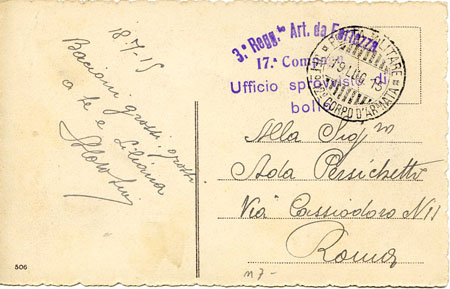 18-7-15
Bacioni grossi, grossi
a te e Liliana
Aldo
3.° Regg.to Art. da Fortezza
17.a Comp
Ufficio sprovvisto di
bolli
POSTA MILITARE
19 LUG 15
CORPO D'ARMATA
Alla Sig.
Ada Persichetti
Via Cassiodoro N 11
Roma
506